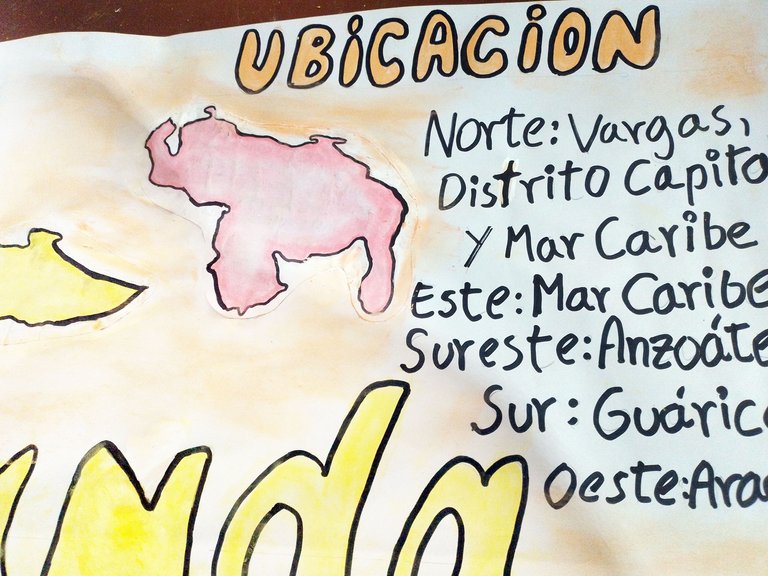 UBICACION
Norte: Vargas,
Distrito Capita
y Mar Caribe
Este: Mar Caribe
Sureste: Anzoáte
Sur: Guáric
Oeste: Ara
anda